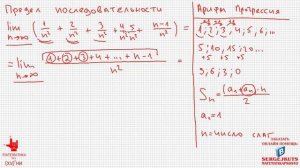 Предел последовательности
lim n→∞ (1/n² + 2/n² + 3/n² + 4 5/n² + n-1/n²) =
= lim n→∞ 1+2+3+4+...+n-1 / n² =
Арифм Прогрессия
1; 2; 3; 4; 5; 6...
5; 10; 15; 20...
+5 +5 +5
9; 6; 3; 0
Sₙ = (a₁+aₙ)·n / 2
a₁=1
n=число слаг